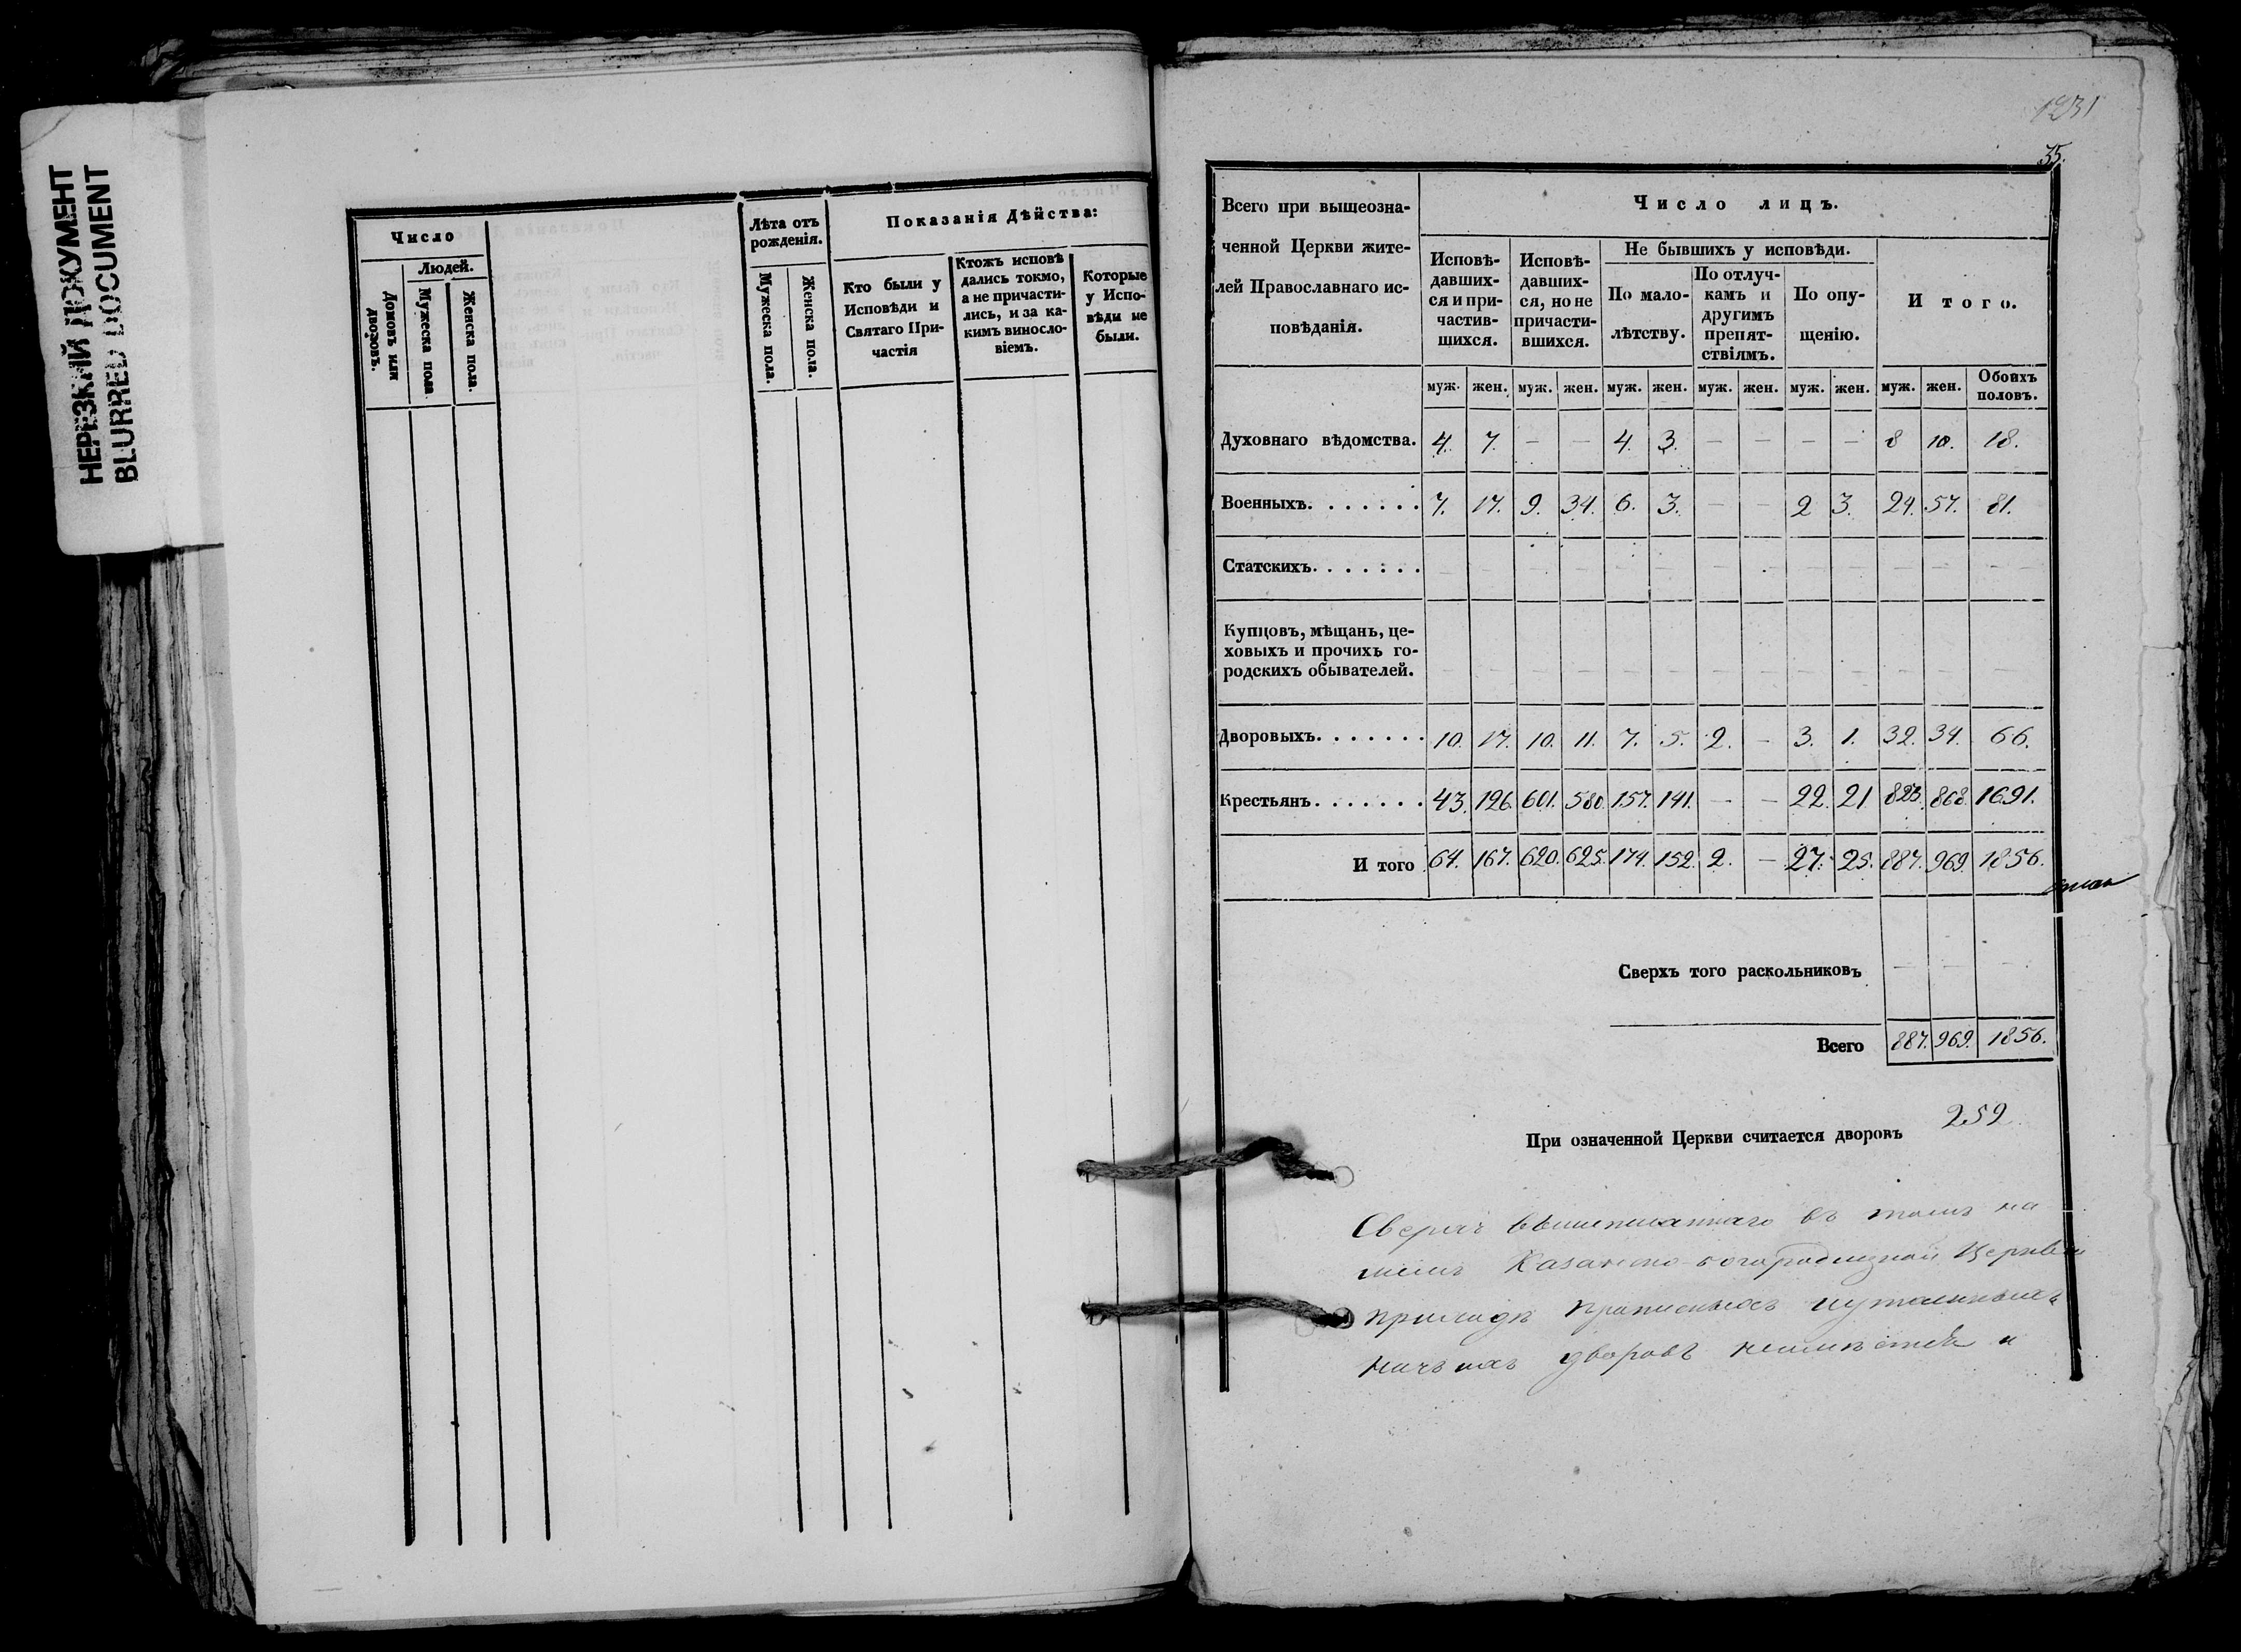 НЕРЕЗКИЙ ДОКУМЕНТ
BLURRED DOCUMENT
Число
Людей.
Домовъ или дворовъ.
Мужеска пола
Женска пола.
Лѣта отъ рожденія.
Мужеска пола.
Женска пола.
Показанія Дѣйства:
Кто были у
Исповѣди и
Святаго При-
частія
Ктожъ исповѣ
дались токмо,
а не причасти-
лись, и за ка-
кимъ виносло-
віемъ.
Которые
у Испо-
вѣди не
были.
1231
35.
Всего при вышеозна-
ченной Церкви жите-
лей Православнаго ис-
повѣданія.
Число лицъ.
Исповѣ-
давших-
ся и при-
частив-
шихся.
Исповѣ-
давших-
ся, но не
причасти-
вшихся.
Не бывшихъ у исповѣди.
По мало-
лѣтству.
По отлуч-
камъ и
другимъ
препят-
ствіямъ.
По опу-
щенію.
Итого.
муж. жен. муж. жен. муж. жен. муж. жен. муж. жен. муж. жен. Обоихъ половъ.
Духовнаго вѣдомства. 4. 7. — — 4. 3. — — — — 8 10. 18.
Военныхъ. . . . . . . 7. 17. 9. 34. 6. 3. — — 2 3. 24. 57. 81.
Статскихъ. . . . . . . — — — — — — — — — — — — —
Купцовъ, мѣщанъ, це-
ховыхъ и прочихъ го-
родскихъ обывателей. — — — — — — — — — — — — —
Дворовыхъ. . . . . . . 10. 17. 10. 11. 7. 5. 2. — 3. 1. 32. 34. 66.
Крестьянъ. . . . . . . 43. 126. 601. 580. 157. 141. — — 22. 21 823. 868. 1691.
И того 64. 167. 620. 625. 174. 152. 2. — 27. 25. 887. 969. 1856.
Сверхъ того раскольниковъ — — —
Всего 887. 969. 1856.
При означенной Церкви считается дворовъ 252.
Сверхъ вышеписаннаго въ томъ на
шемъ Казанско-богородицкой Церкви
приходѣ прописныхъ
дворовъ и